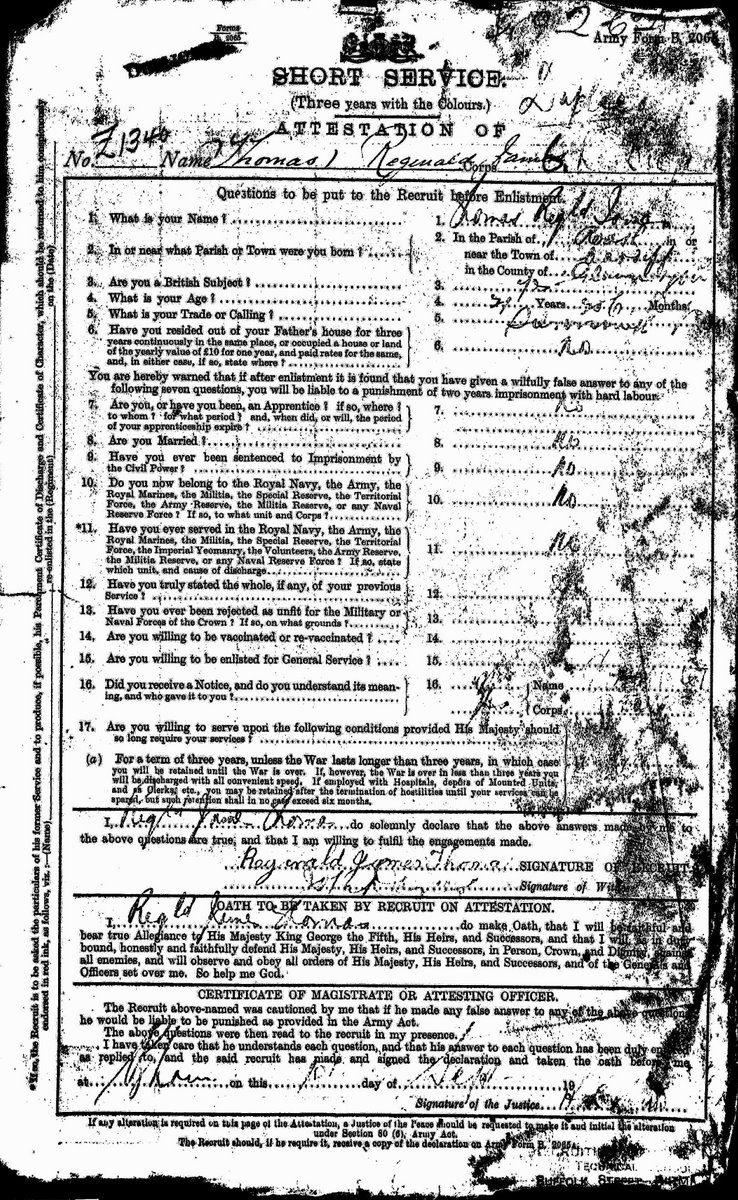 Forms
B. 2065
Army Form B. 2065
SHORT SERVICE.
(Three years with the Colours.)
ATTESTATION OF
No. Z1340 Name Thomas Reginald James Corps
Questions to be put to the Recruit before Enlistment.
1. What is your Name? 1. Thomas Regld James
2. In or near what Parish or Town were you born? 2. In the Parish of in or
near the Town of Cardiff
in the County of Glamorgan
3. Are you a British Subject? 3. Yes
4. What is your Age? 4. Years Months.
5. What is your Trade or Calling? 5.
6. Have you resided out of your Father's house for three
years continuously in the same place, or occupied a house or land
of the yearly value of £10 for one year, and paid rates for the same,
and, in either case, if so, state where? 6. No
You are hereby warned that if after enlistment it is found that you have given a wilfully false answer to any of the
following seven questions, you will be liable to a punishment of two years imprisonment with hard labour.
7. Are you, or have you been, an Apprentice? if so, where? 7. No
to whom? for what period? and, when did, or will, the period
of your apprenticeship expire?
8. Are you Married? 8. No
9. Have you ever been sentenced to Imprisonment by
the Civil Power? 9. No
10. Do you now belong to the Royal Navy, the Army, the
Royal Marines, the Militia, the Special Reserve, the Territorial
Force, the Army Reserve, the Militia Reserve, or any Naval
Reserve Force? If so, to what unit and Corps? 10. No
*11. Have you ever served in the Royal Navy, the Army, the
Royal Marines, the Militia, the Special Reserve, the Territorial
Force, the Imperial Yeomanry, the Volunteers, the Army Reserve,
the Militia Reserve, or any Naval Reserve Force? If so, state
which unit, and cause of discharge 11. No
12. Have you truly stated the whole, if any, of your previous
Service? 12.
13. Have you ever been rejected as unfit for the Military or
Naval Forces of the Crown? If so, on what grounds? 13.
14. Are you willing to be vaccinated or re-vaccinated? 14.
15. Are you willing to be enlisted for General Service? 15.
16. Did you receive a Notice, and do you understand its mean-
ing, and who gave it to you? 16. Yes Name
Corps
17. Are you willing to serve upon the following conditions provided His Majesty should
so long require your services?
(a) For a term of three years, unless the War lasts longer than three years, in which case
you will be retained until the War is over. If, however, the War is over in less than three years you
will be discharged with all convenient speed. If employed with Hospitals, depôts of Mounted Units,
and as Clerks, etc., you may be retained after the termination of hostilities until your services can be
spared, but such retention shall in no case exceed six months.
I, Regld James Thomas do solemnly declare that the above answers made by me to
the above questions are true, and that I am willing to fulfil the engagements made.
Reginald James Thomas SIGNATURE OF RECRUIT
Signature of Witness
OATH TO BE TAKEN BY RECRUIT ON ATTESTATION.
I, Regld James Thomas do make Oath, that I will be faithful and
bear true Allegiance to His Majesty King George the Fifth, His Heirs, and Successors, and that I will, as in duty
bound, honestly and faithfully defend His Majesty, His Heirs, and Successors, in Person, Crown, and Dignity, against
all enemies, and will observe and obey all orders of His Majesty, His Heirs, and Successors, and of the Generals and
Officers set over me. So help me God.
CERTIFICATE OF MAGISTRATE OR ATTESTING OFFICER.
The Recruit above-named was cautioned by me that if he made any false answer to any of the above questions
he would be liable to be punished as provided in the Army Act.
The above questions were then read to the recruit in my presence.
I have taken care that he understands each question, and that his answer to each question has been duly entered
as replied to, and the said recruit has made and signed the declaration and taken the oath before me
at B'ham on this day of Sept 19
Signature of the Justice
If any alteration is required on this page of the Attestation, a Justice of the Peace should be requested to make it and initial the alteration
under Section 80 (6), Army Act.
The Recruit should, if he require it, receive a copy of the declaration on Army Form B. 2065A
TECHNICAL
SUFFOLK STREET
*If so, the Recruit is to be asked the particulars of his former Service and to produce, if possible, his Parchment Certificate of Discharge and Certificate of Character, which should be returned to him conspicuously
endorsed in red ink, as follows, viz.:—(Name) re-enlisted in the (Regiment) on the (Date)